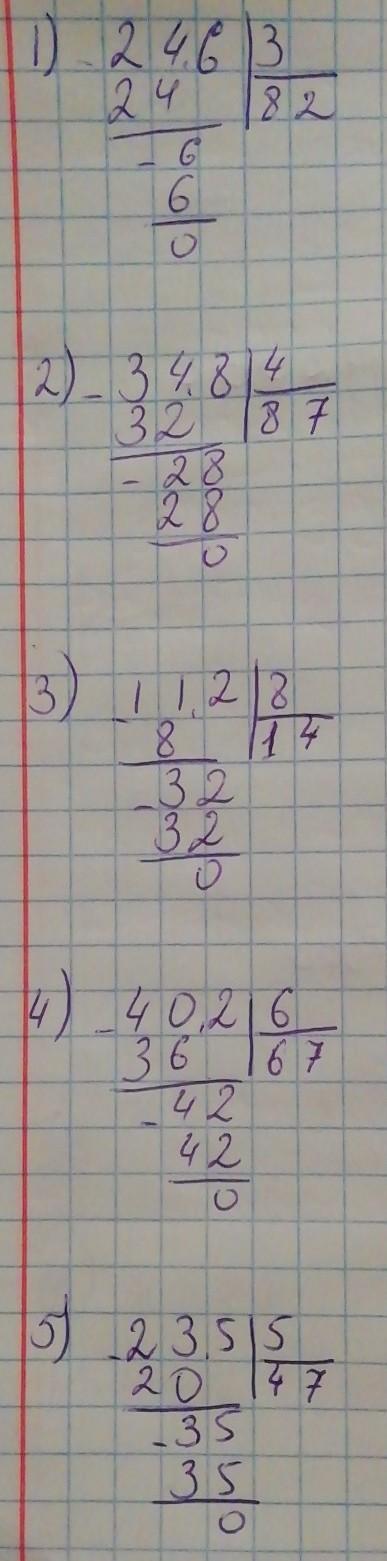 1) - 24.6 | 3
24 | 82
- 6
6
0
2) - 34.8 | 4
32 | 87
- 28
28
0
3) - 11.2 | 8
8 | 14
- 32
32
0
4) - 40.2 | 6
36 | 67
- 42
42
0
5) - 23.5 | 5
20 | 47
- 35
35
0